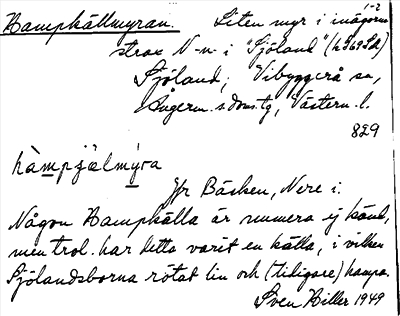 1-2
Hampkällmyran. Liten myr i inägorna
strax N-n i "Sjöland" (h 569 Sd)
Sjöland; Vibyggerå sn,
Ångerm. s. doms. tg, Västern. l.
829
hàmpjälmýra
Jfr Bäcken, Nere i:
Någon Hampkälla är numera ej känd,
men trol. har detta varit en källa, i vilken
Sjölandsborna rötat lin och (tidigare) hampa.
Sven Hiller 1949